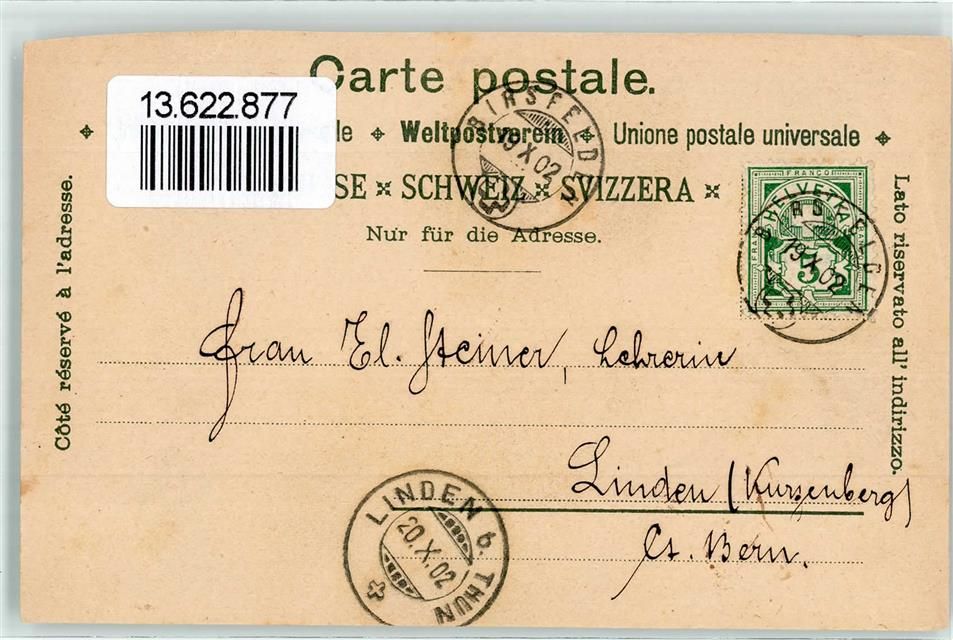 Carte postale.
13.622.877
le Weltpostverein Unione postale universale
SE × SCHWEIZ × SVIZZERA ×
Nur für die Adresse.
BIRSFELDEN
19 X 02
FRANCO
HELVETIA
5
19 X 02
Côté réservé à l'adresse.
Lato riservato all' indirizzo.
Frau El. Steiner, Lehrerin
Linden (Kurzenberg)
Ct. Bern.
LINDEN b. THUN
20. X. 02